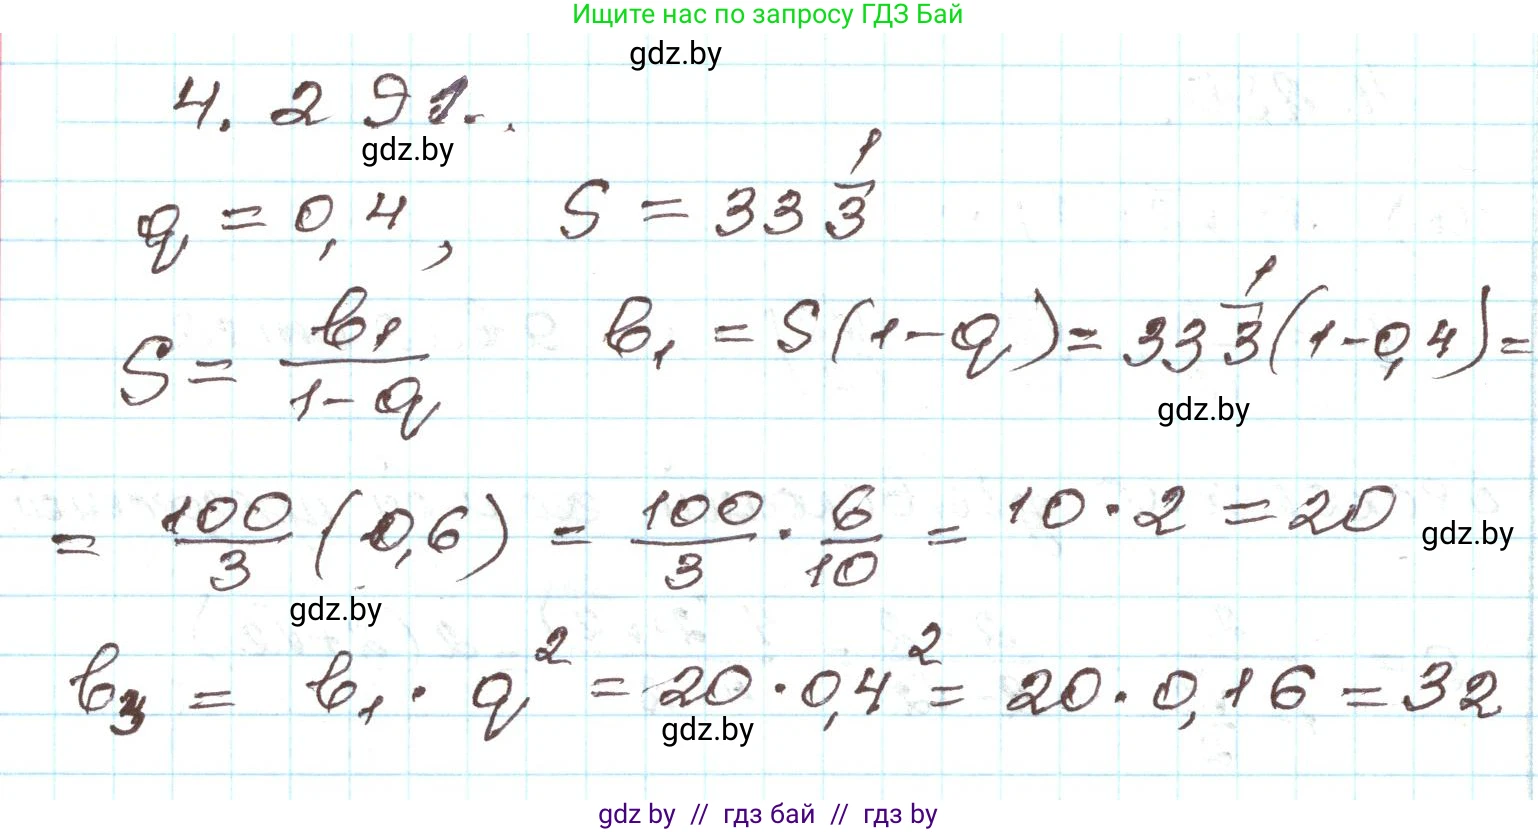 Ищите нас по запросу ГДЗ Бай
gdz.by
4.291.
gdz.by
q = 0,4, S = 33 1/3
S = b₁/(1-q) b₁ = S(1-q) = 33 1/3 (1-0,4) =
gdz.by
= 100/3 (0,6) = 100/3 · 6/10 = 10 · 2 = 20
gdz.by
gdz.by
b₃ = b₁ · q² = 20 · 0,4² = 20 · 0,16 = 32
gdz.by
gdz by // гдз бай // гдз by